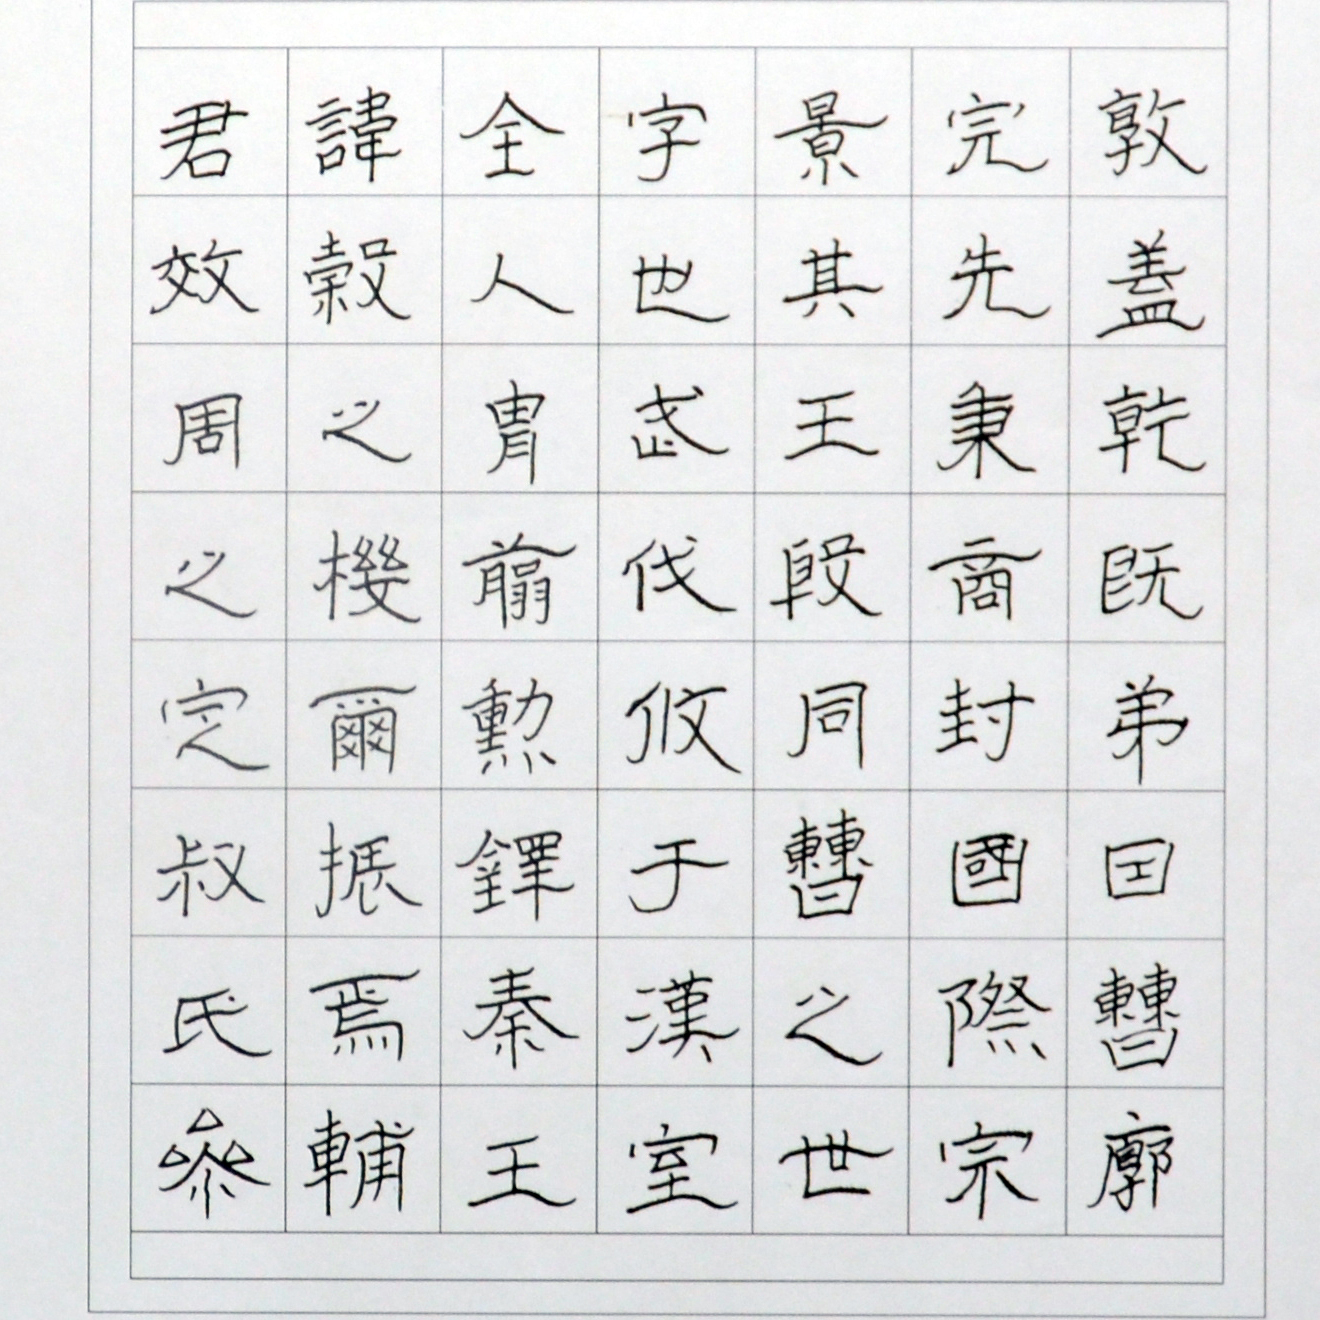 君諱全字景完敦
效穀人也其先盖
周之冑武王秉乾
之機翦伐殷商既
定爾勲攸同封弟
叔振鐸于曹國囙
氏焉秦漢之際曹
參輔王室世宗廓